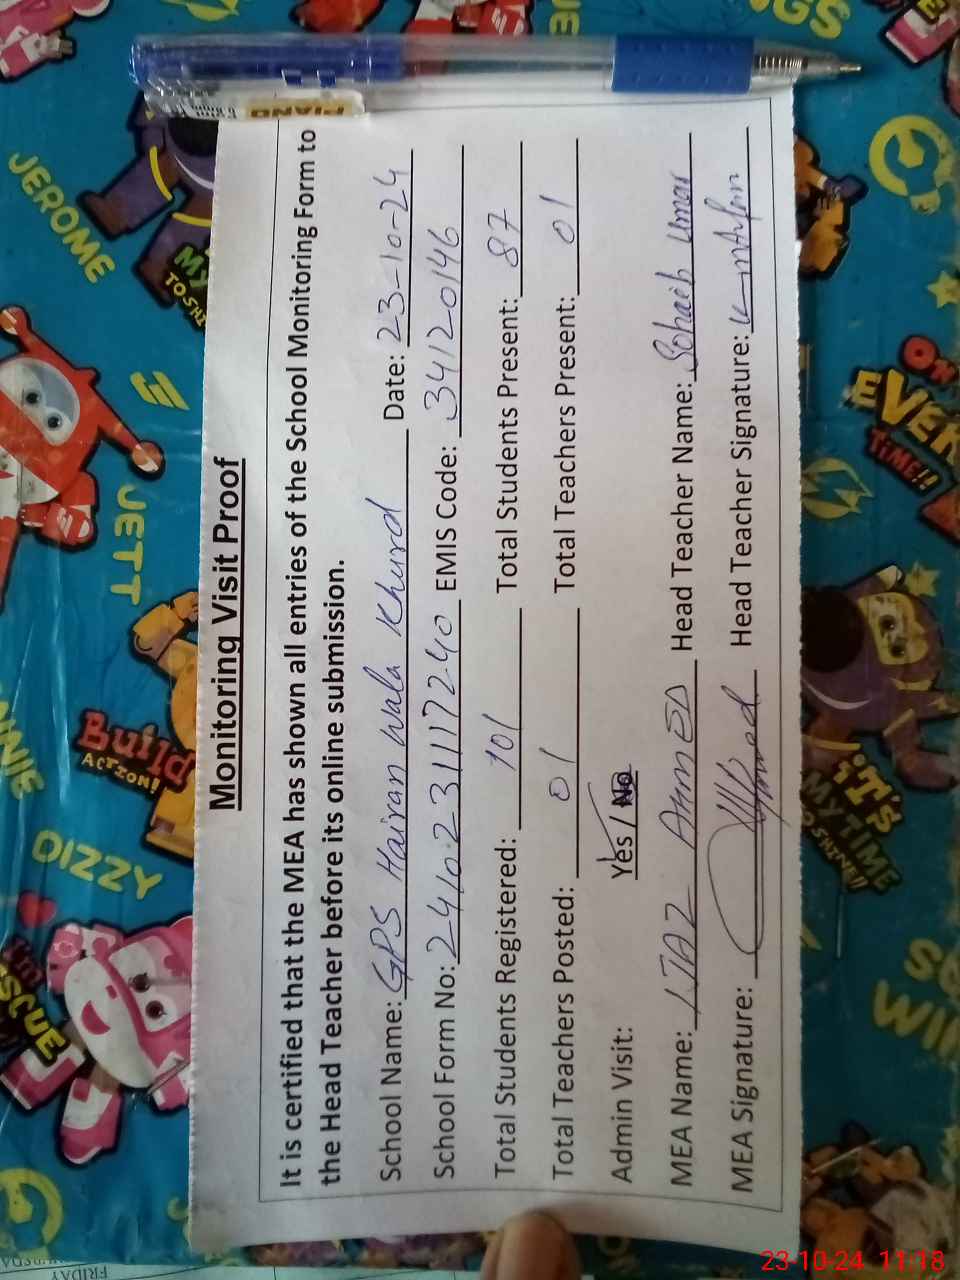 Monitoring Visit Proof
It is certified that the MEA has shown all entries of the School Monitoring Form to
the Head Teacher before its online submission.
School Name: GPS Hairan Wala Khurd Date: 23-10-24
School Form No: 2410231117240 EMIS Code: 34120146
Total Students Registered: 101 Total Students Present: 87
Total Teachers Posted: 01 Total Teachers Present: 01
Admin Visit: Yes / No
MEA Name: IJAZ AHMED Head Teacher Name: Sohaib Umar
MEA Signature: Head Teacher Signature:
PIANO
JEROME
JETT
MY
TO SHINE
Build
ACTION!
DIZZY
I'm
RESCUE
ON
EVERY
TiME!!
iT'S
MY TIME
TO SHINE!!
FRIDAY
23-10-24 11:18